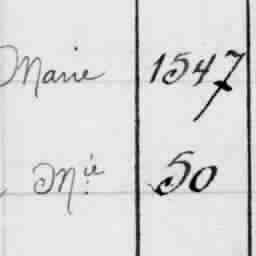 Marie 1547
Mie 50